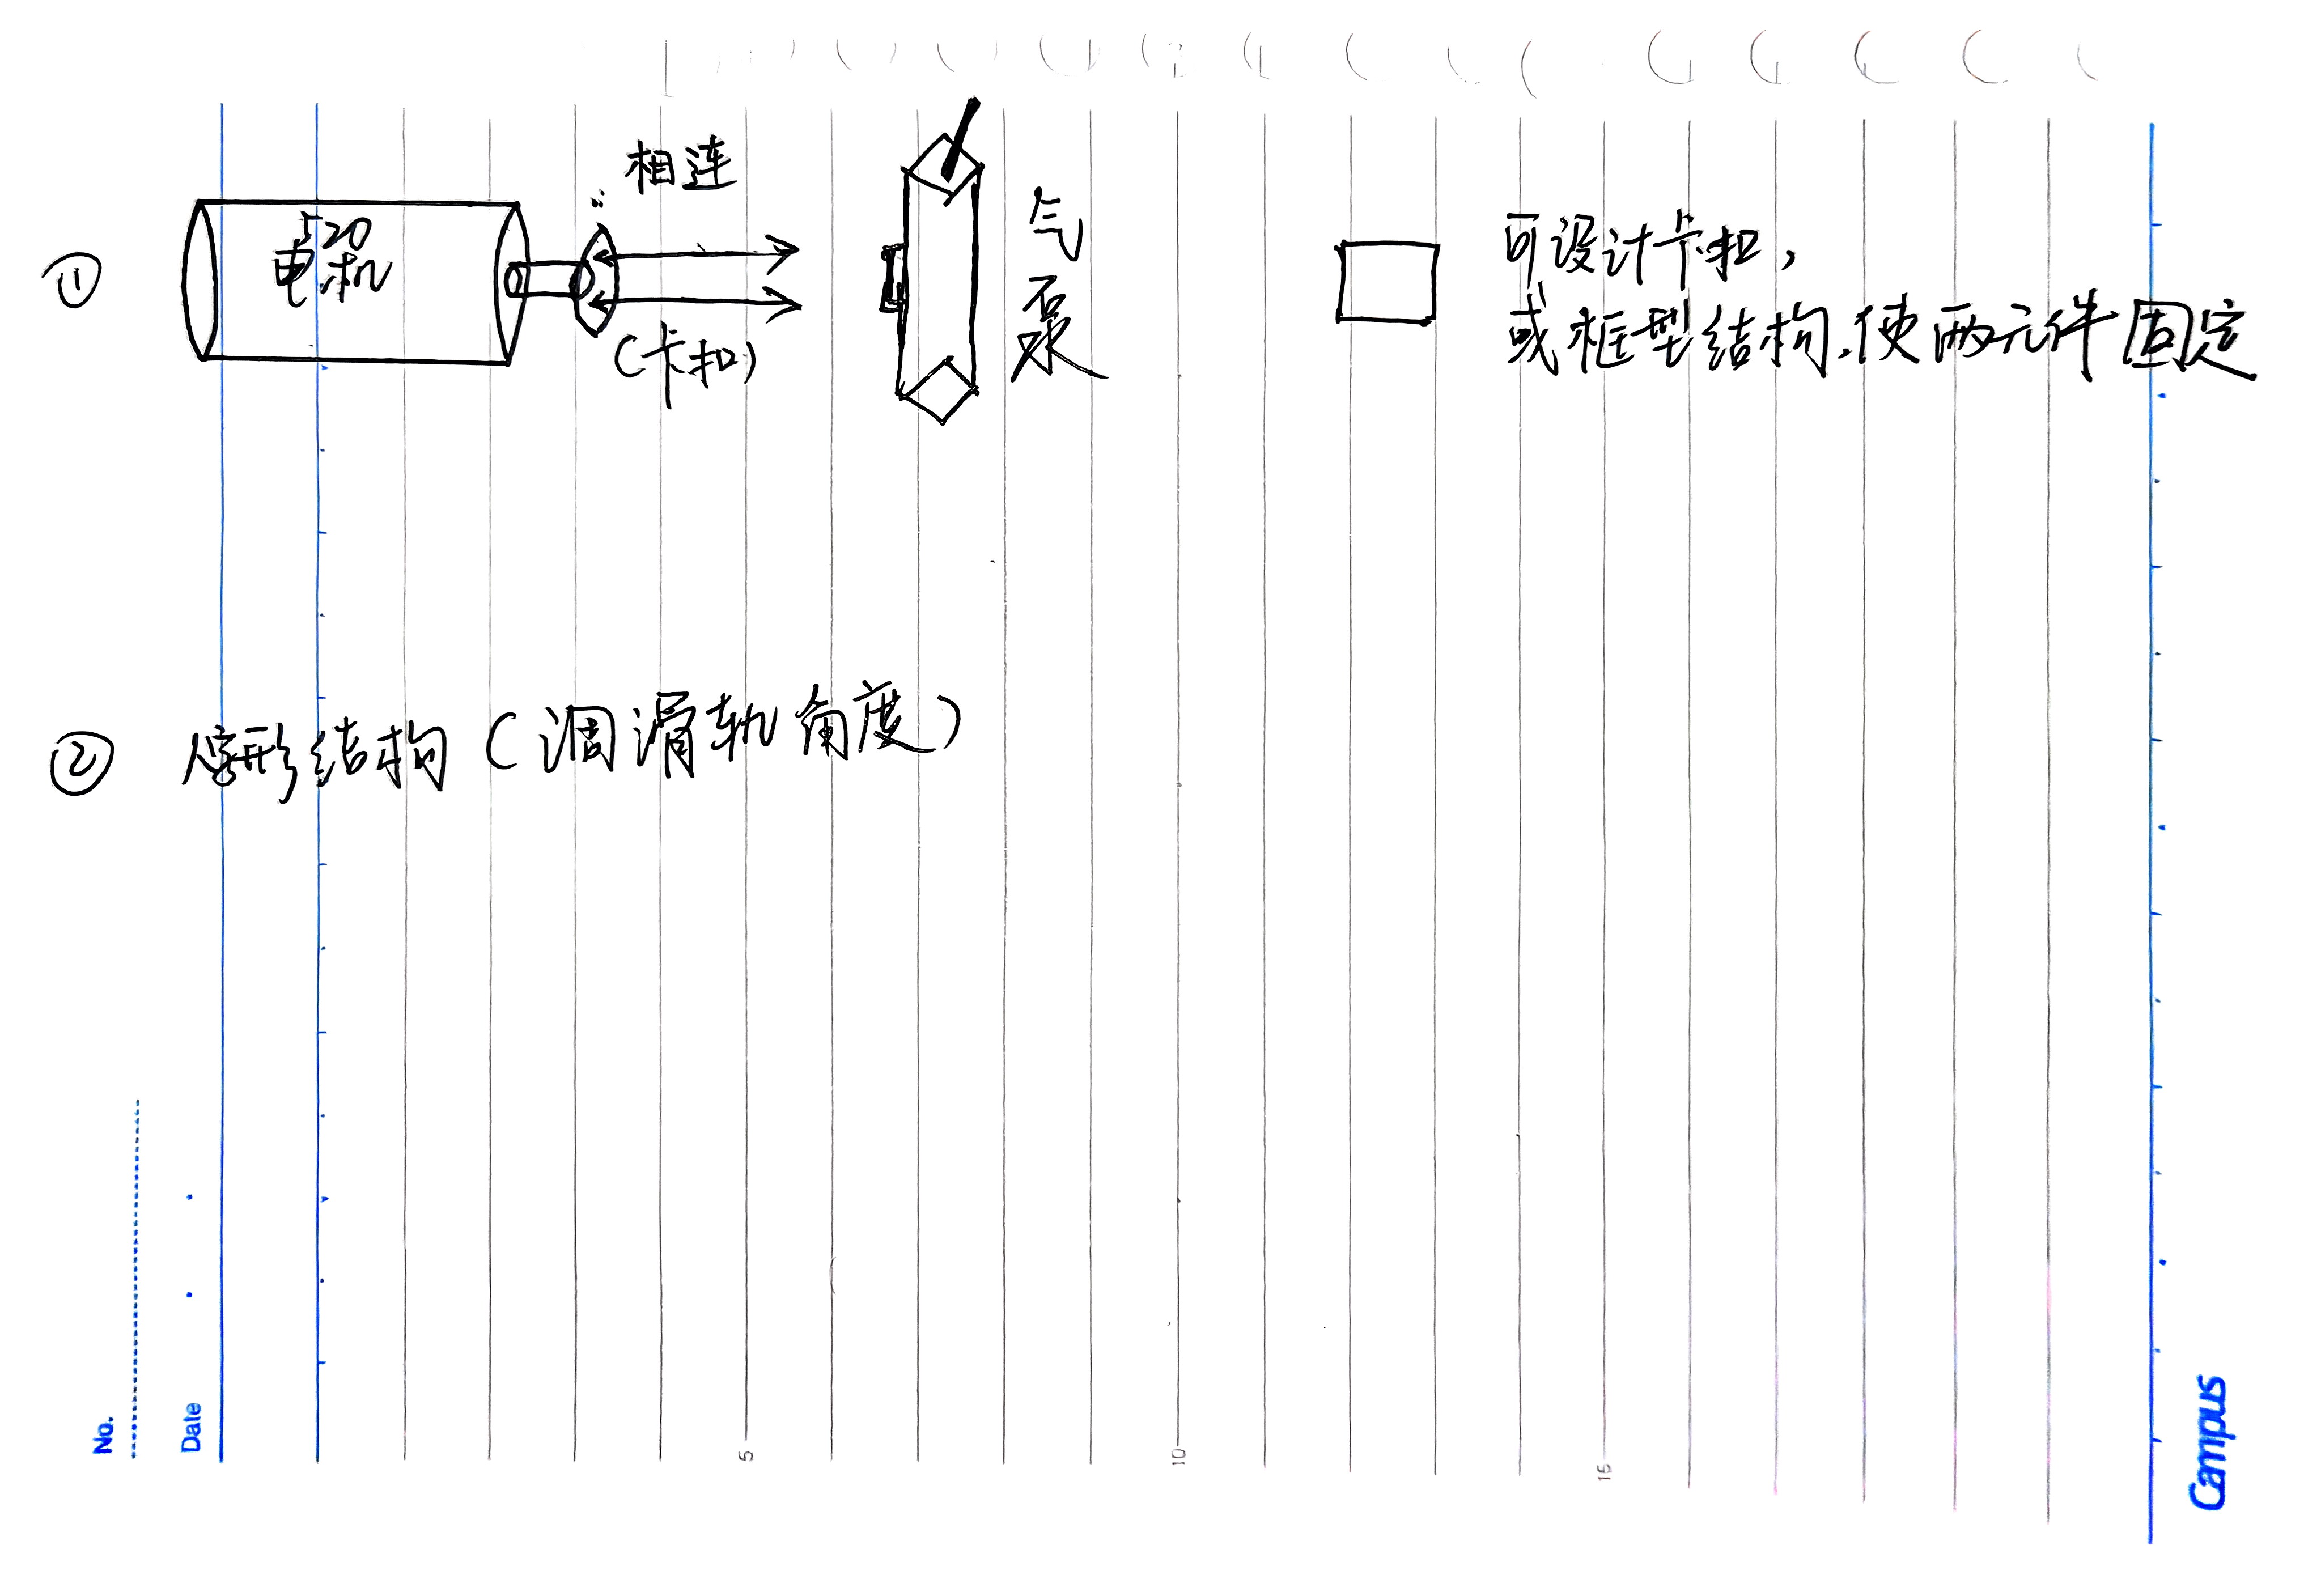 ①
520
电机
相连
(卡扣)
气泵
可设计卡扣,
或框型结构,使两元件固定
② 扇形结构(调滑轨角度)
No.
Date
5
10
15
Campus